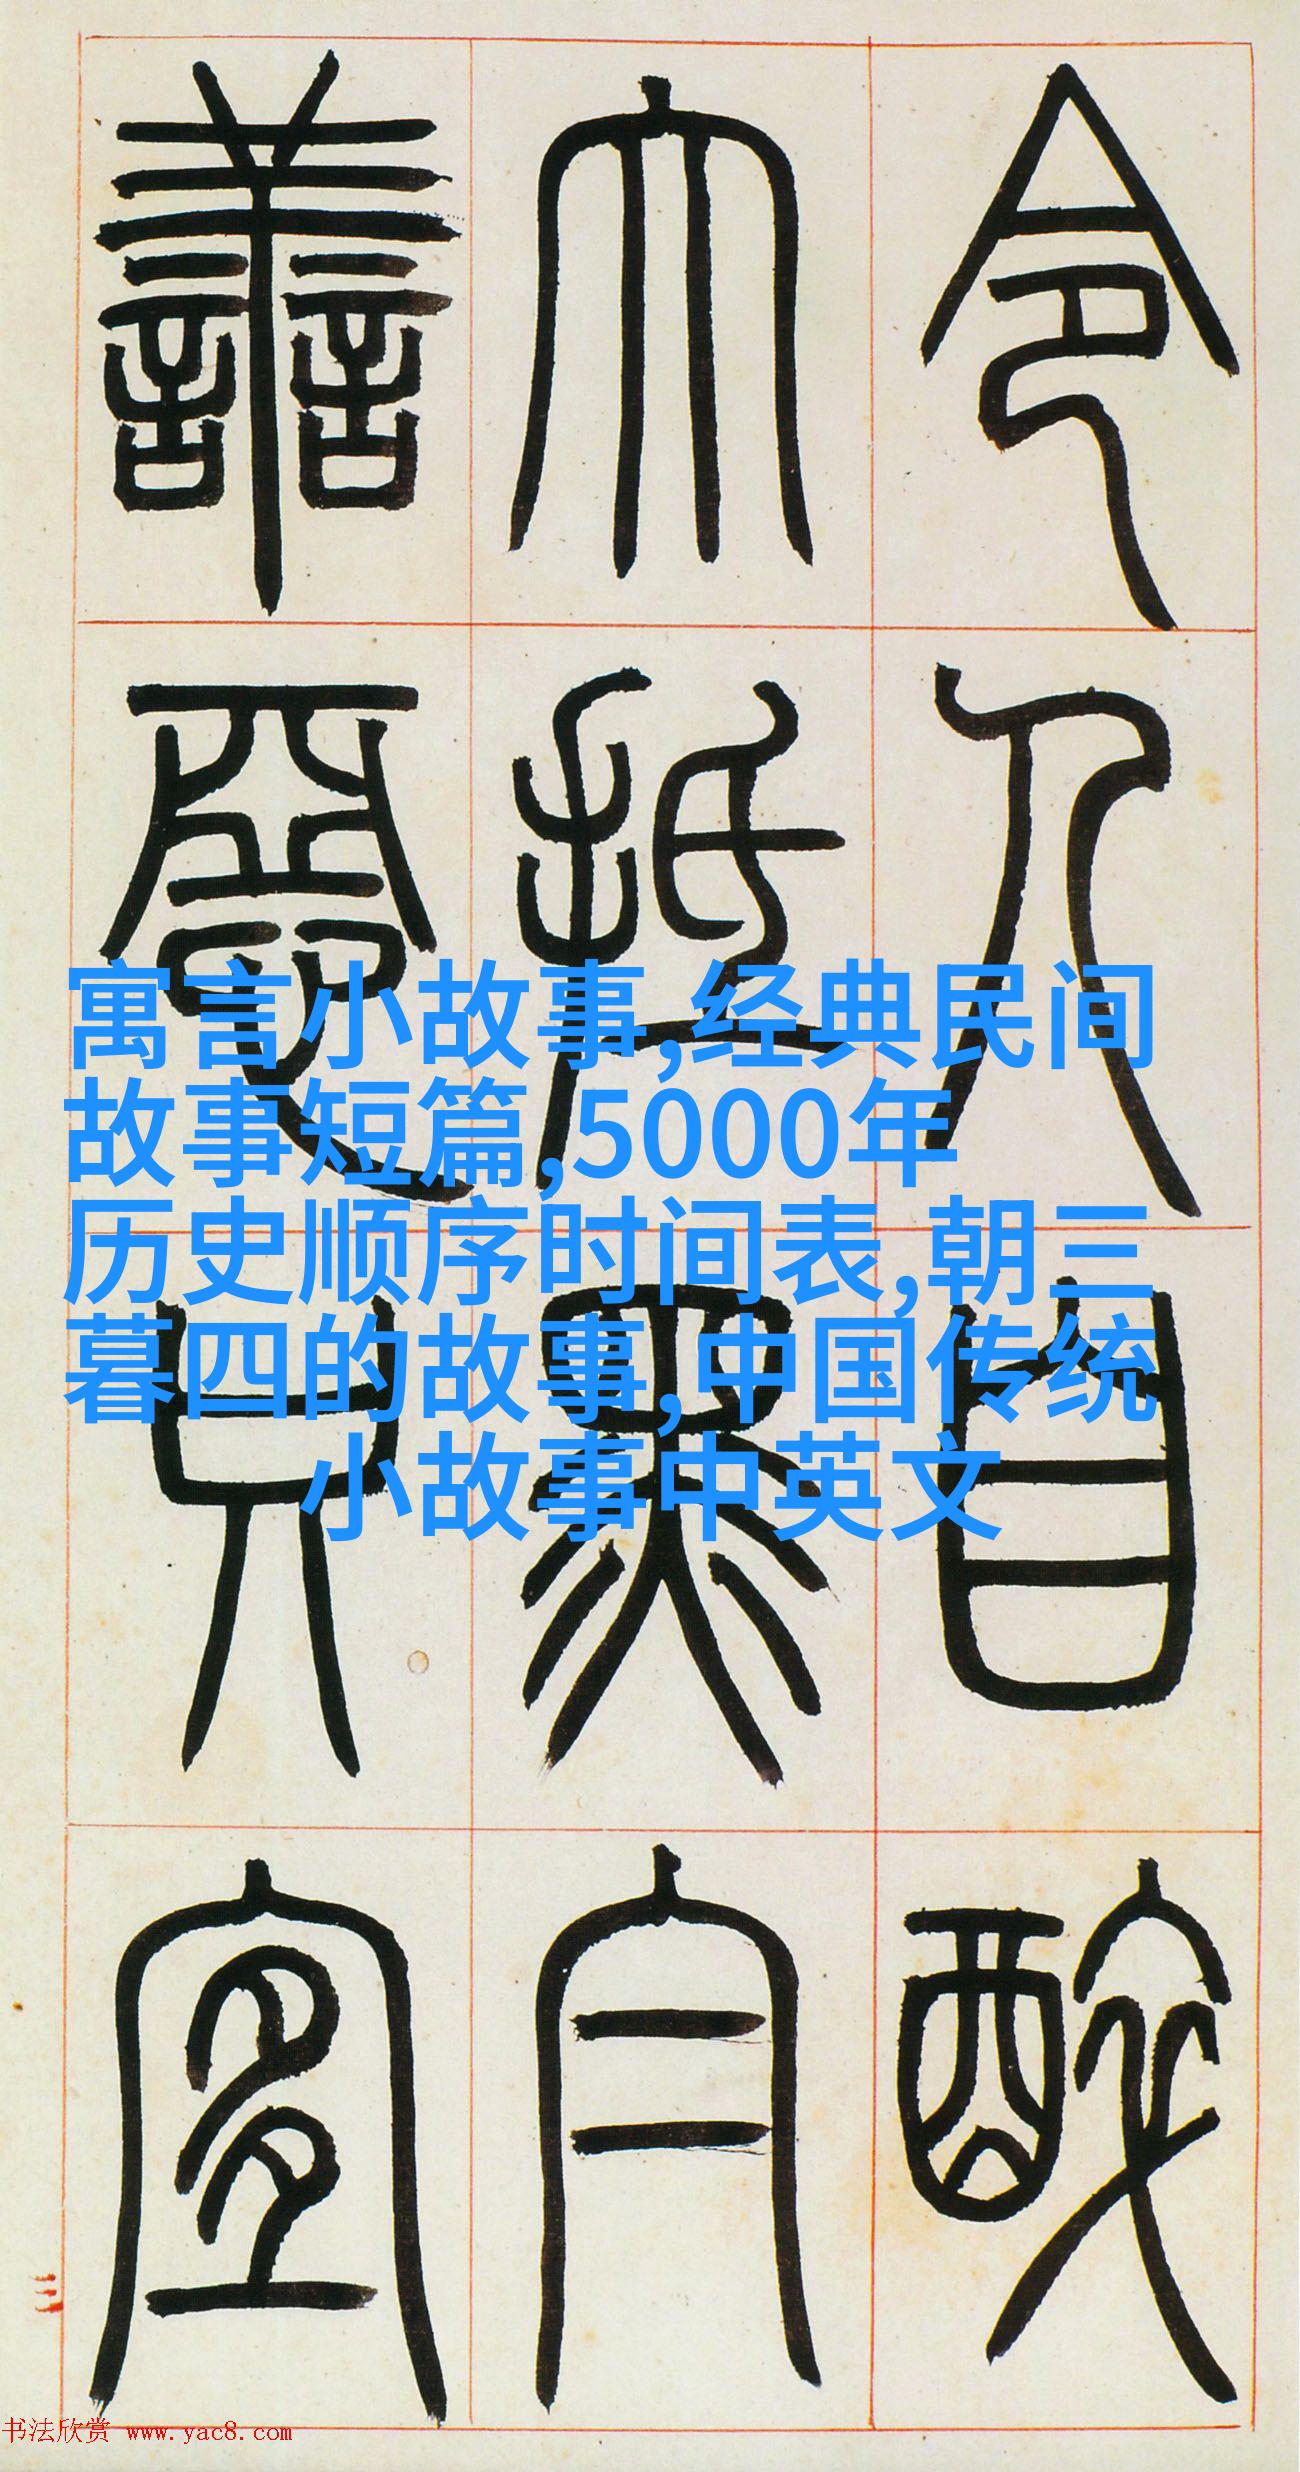 令人自醉
大抵眾月
譱只宜
寓言小故事,经典民间
故事短篇,5000年
历史顺序时间表,朝三
暮四的故事,中国传统
小故事中英文
三
书法欣赏 www.yac8.com